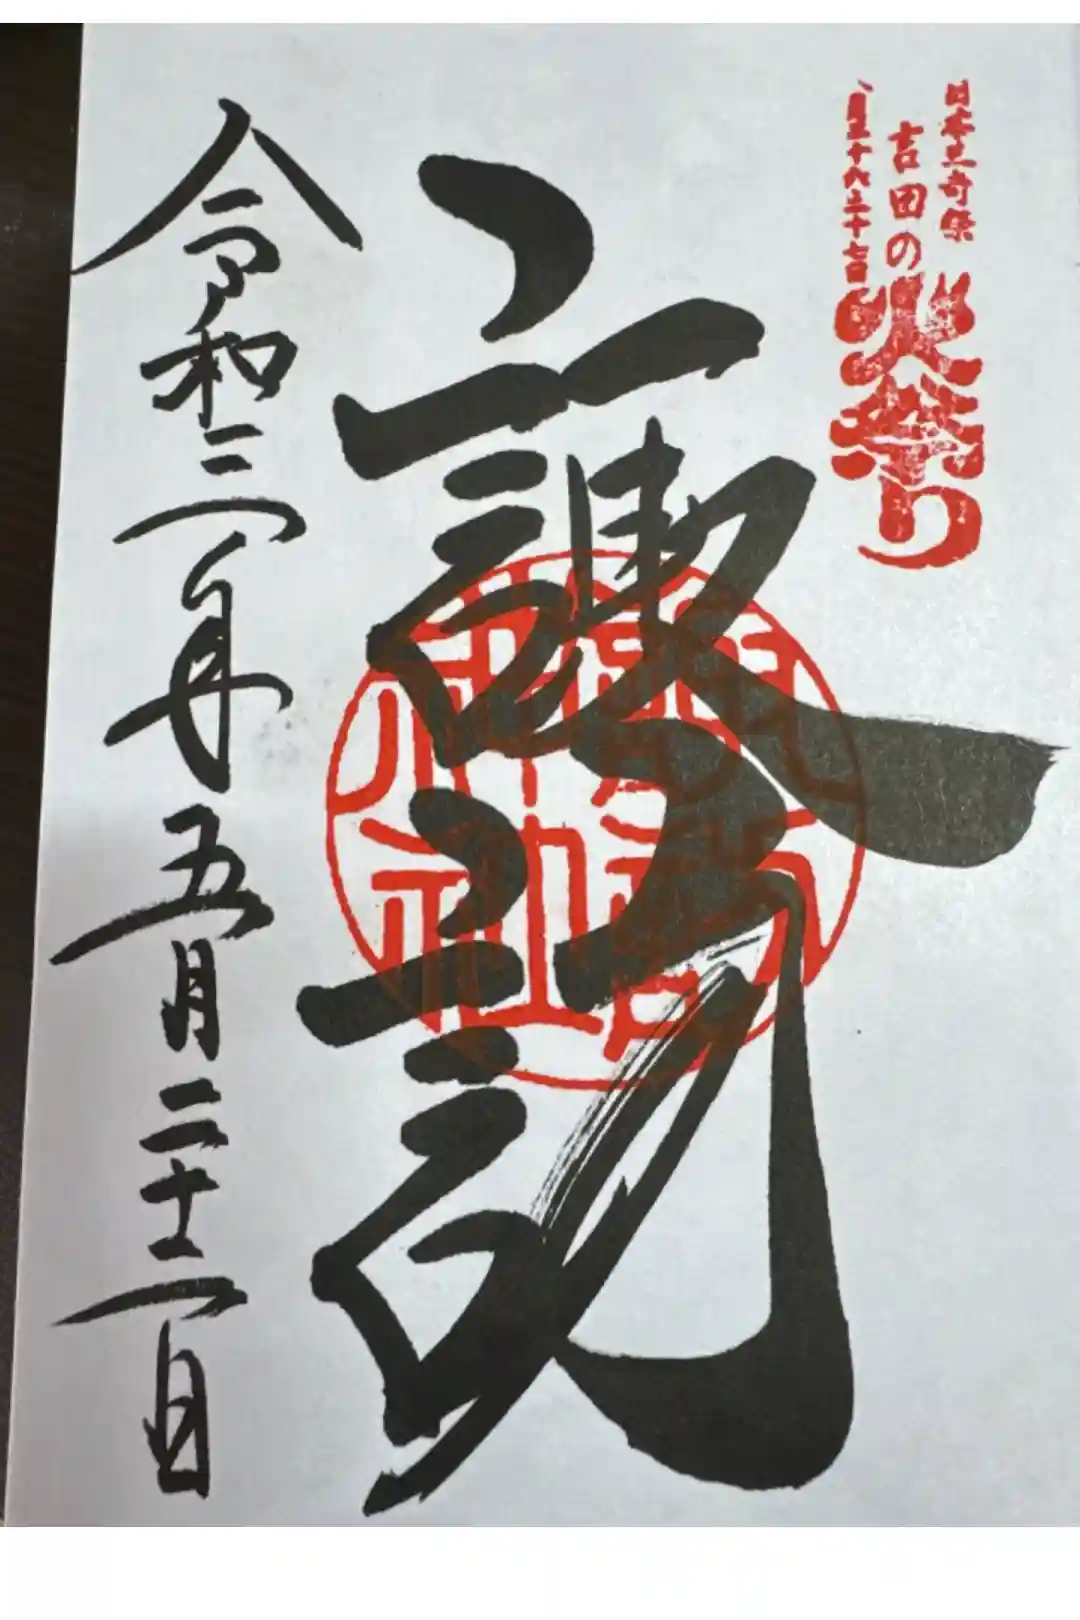 日本三奇祭
吉田の火祭り
八月二十六、二十七日
諏訪
令和三年五月二十二日